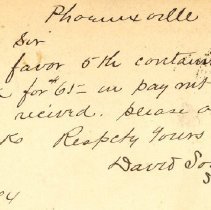 Phoenixville
Sir
favor 5th contain
for $615 in paymt
recived. please a
Respcty Yours
David